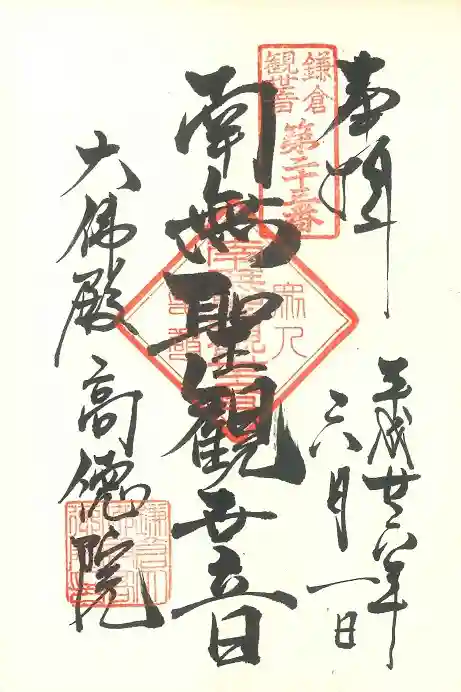 奉拝
平成廿六年
六月一日
鎌倉
観世音
第二十三番
南無聖観世音
大佛殿
高徳院